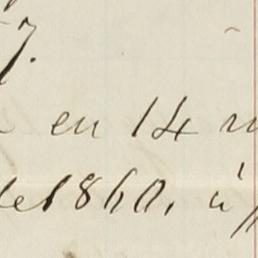 7.
en 14
de 1860. à